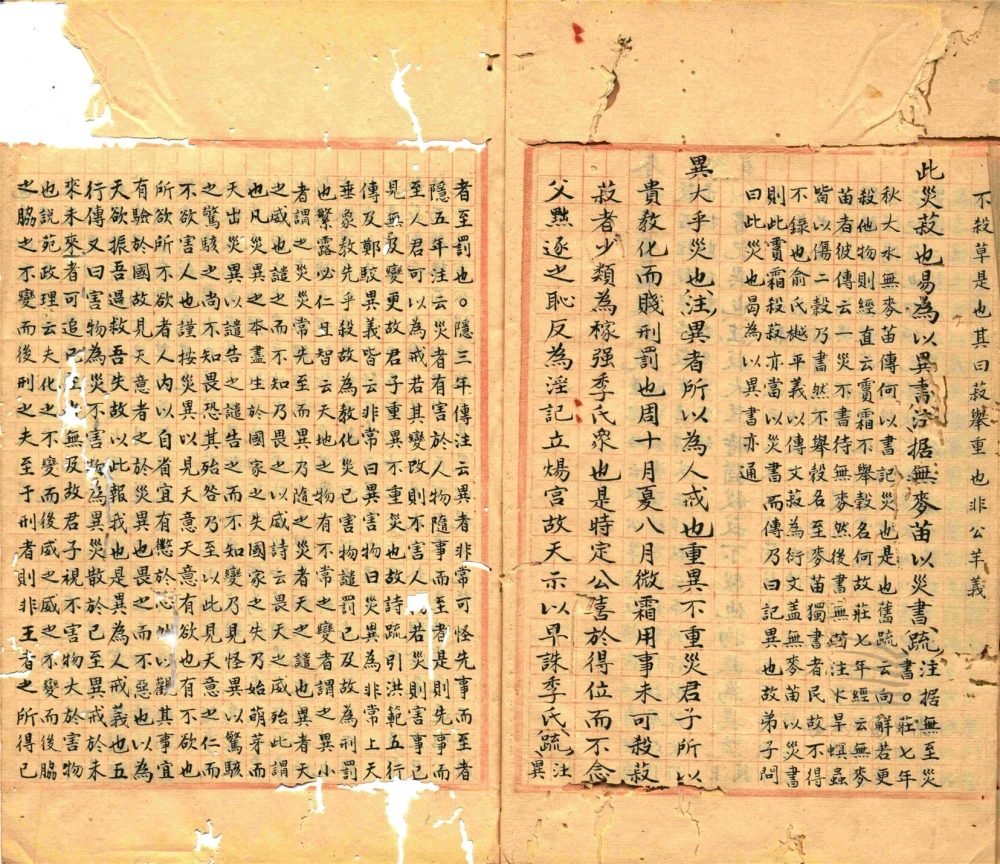 不殺草是也其曰菽舉重也非公羊義
此災菽也曷為以異書注据無麥苗以災書疏注据無至災書○莊七年
秋大水無麥苗傳何以書記災也是也舊疏云向解若更
殺他物則經直云霣霜不舉穀名何故莊七年經云無麥
苗者彼傳云一災不書待無麥然後書無苗注水旱螟蟲
皆以傷二穀乃書然不舉穀名至麥苗獨書者民故不得
不錄也俞氏樾平義以傳文菽為衍文蓋無麥苗以災書
則此霣霜殺菽亦當以災書而傳乃曰記異也故弟子問
曰此災也曷為以異書亦通
異大乎災也注異者所以為人戒也重異不重災君子所以
貴教化而賤刑罰也周十月夏八月微霜用事未可殺菽
菽者少類為稼强季氏象也是時定公喜於得位而不念
父黜逐之恥反為淫祀立煬宮故天示以早誅季氏疏注異
者至罰也○隱三年傳注云異者非常可怪先事而至者
隱五年注云災者有害於人物隨事而至者是則先事而
至人君可以為戒若其變改則不害人若災則害事已
見無及變更故君子重異不重災也故詩疏引洪範五行
傳及鄭駁異義皆云非常曰異害物曰災異為非常上天
垂象教先乎殺故為教化災已害物譴罰已及故為刑罰
也繁露必仁且智云天地之物有不常之變者謂之異小
者謂之災災常先至而異乃隨之災者天之譴也異者天
之威也譴之而不知乃畏之以威詩云畏天之威殆此謂
也凡災異之本盡生於國家之失國家之失乃始萌芽而
天出災異以譴告之譴告之而不知變乃見怪異以驚駭
之驚駭之尚不知畏恐其殆咎乃至以此見天意之仁而
不欲害人也謹按災異以見天意天意有欲也有不欲也
所欲所不欲者人內以自省宜有懲於心以觀其事宜
有驗於國故見天意者之於災異也畏之而不惡也以為
天欲振吾過救吾失故以此報我也是異為人戒義也五
行傳又曰害物為災不害物為異災散於已至異戒於未
來未來者可追已無及故君子視不害物大於害物
也說苑政理云夫化之不變而後威之威之不變而後脇
之脇之不變而後刑之夫至于刑者則非王者之所得已